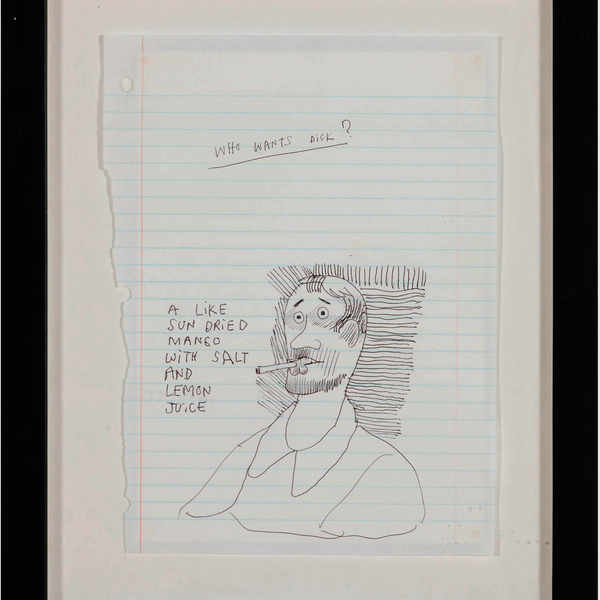 WHO WANTS DICK?
A LiKE
SUN DRiED
MANGO
WiTH SALT
AND
LEMON
JUiCE